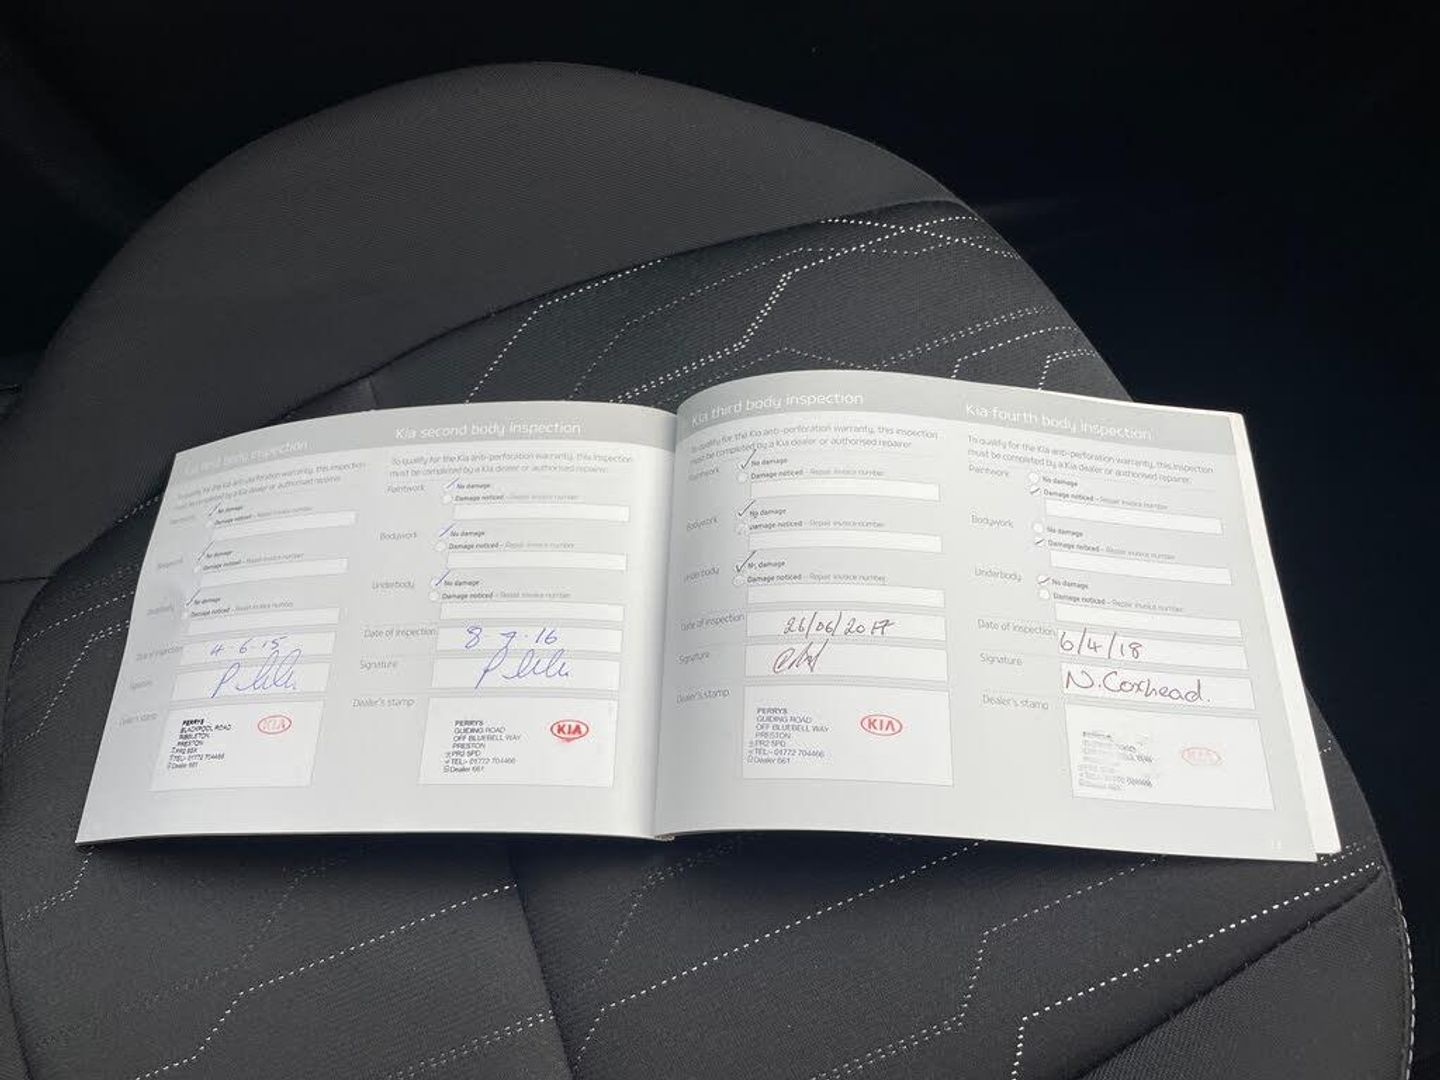 Kia first body inspection
To qualify for the Kia anti-perforation warranty, this inspection
must be completed by a Kia dealer or authorised repairer.
Paintwork
No damage
Damage noticed – Repair invoice number
Bodywork
No damage
Damage noticed – Repair invoice number
Underbody
No damage
Damage noticed – Repair invoice number
Date of inspection
4-6-15
Signature
Dealer's stamp
PERRYS
BLACKPOOL ROAD
RIBBLETON
PRESTON
PR2 6BX
TEL:- 01772 704466
Dealer 661
KIA
Kia second body inspection
To qualify for the Kia anti-perforation warranty, this inspection
must be completed by a Kia dealer or authorised repairer.
Paintwork
No damage
Damage noticed – Repair invoice number
Bodywork
No damage
Damage noticed – Repair invoice number
Underbody
No damage
Damage noticed – Repair invoice number
Date of inspection
8 7·16
Signature
Dealer's stamp
PERRYS
GUIDING ROAD
OFF BLUEBELL WAY
PRESTON
PR2 5PD
TEL:- 01772 704466
Dealer 661
KIA
Kia third body inspection
To qualify for the Kia anti-perforation warranty, this inspection
must be completed by a Kia dealer or authorised repairer.
Paintwork
No damage
Damage noticed – Repair invoice number
Bodywork
No damage
Damage noticed – Repair invoice number
Underbody
No damage
Damage noticed – Repair invoice number
Date of inspection
26/06/2017
Signature
Dealer's stamp
PERRYS
GUIDING ROAD
OFF BLUEBELL WAY
PRESTON
PR2 5PD
TEL:- 01772 704466
Dealer 661
KIA
Kia fourth body inspection
To qualify for the Kia anti-perforation warranty, this inspection
must be completed by a Kia dealer or authorised repairer.
Paintwork
No damage
Damage noticed – Repair invoice number
Bodywork
No damage
Damage noticed – Repair invoice number
Underbody
No damage
Damage noticed – Repair invoice number
Date of inspection
6/4/18
Signature
N. Coxhead.
Dealer's stamp
KIA